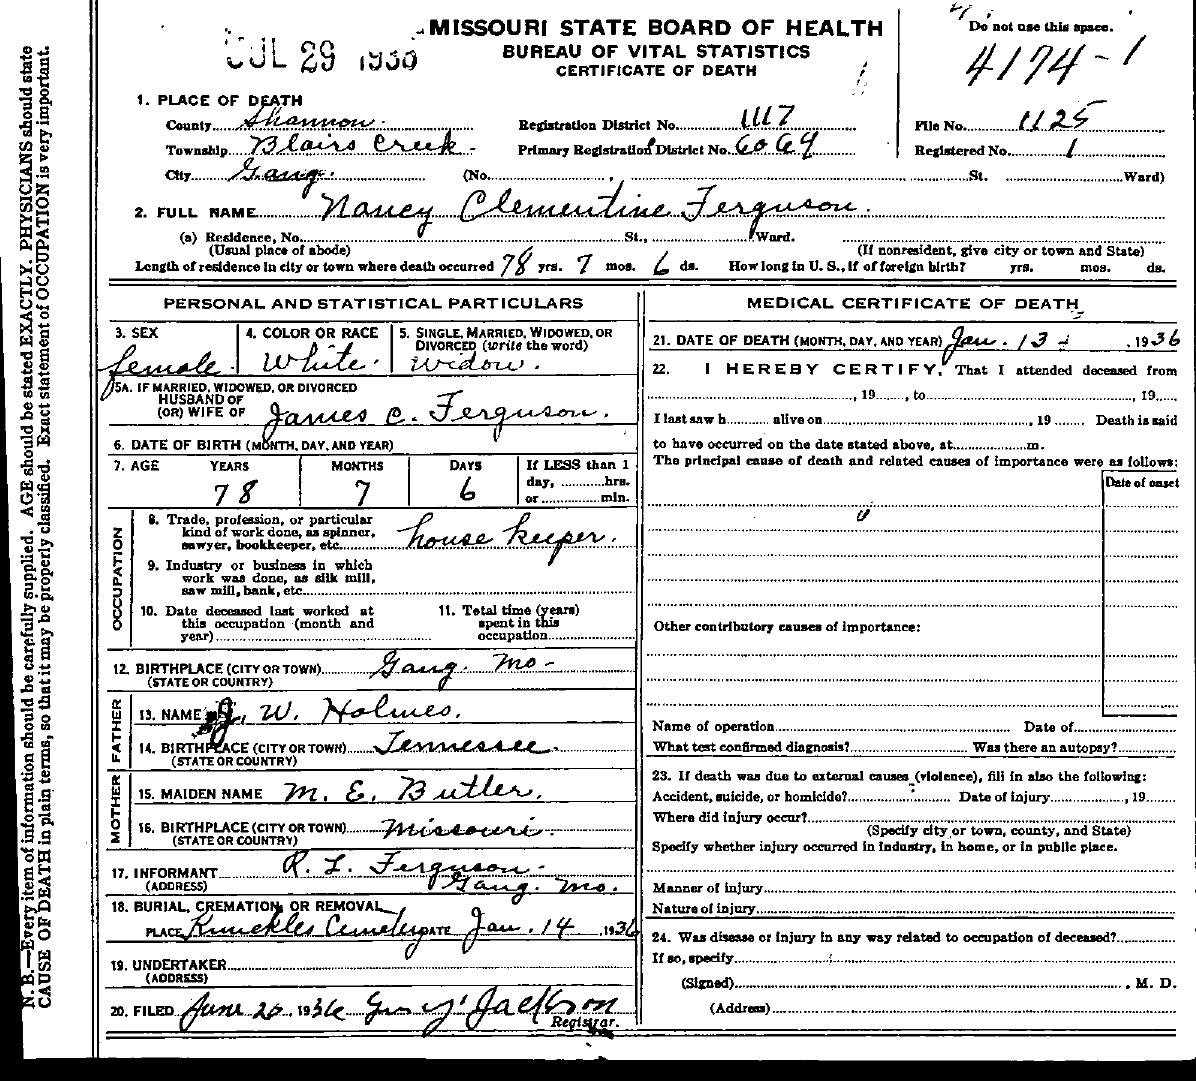 JUL 29 1936
MISSOURI STATE BOARD OF HEALTH
BUREAU OF VITAL STATISTICS
CERTIFICATE OF DEATH
Do not use this space.
4174-1
1. PLACE OF DEATH
County Shannon. Registration District No. 1117 File No. 1125
Township Blairs Creek. Primary Registration District No. 6069 Registered No. 1
City Gang. (No. , St. Ward)
2. FULL NAME Nancy Clementine Ferguson.
(a) Residence, No. St., Ward.
(Usual place of abode) (If nonresident, give city or town and State)
Length of residence in city or town where death occurred 78 yrs. 7 mos. 6 ds. How long in U. S., if of foreign birth? yrs. mos. ds.
PERSONAL AND STATISTICAL PARTICULARS
3. SEX 4. COLOR OR RACE 5. SINGLE, MARRIED, WIDOWED, OR
DIVORCED (write the word)
female. White. Widow.
5A. IF MARRIED, WIDOWED, OR DIVORCED
HUSBAND OF
(OR) WIFE OF James C. Ferguson.
6. DATE OF BIRTH (MONTH, DAY, AND YEAR)
7. AGE YEARS MONTHS DAYS If LESS than 1
day, hrs.
78 7 6 or min.
OCCUPATION
8. Trade, profession, or particular
kind of work done, as spinner,
sawyer, bookkeeper, etc. house keeper.
9. Industry or business in which
work was done, as silk mill,
saw mill, bank, etc.
10. Date deceased last worked at
this occupation (month and
year)
11. Total time (years)
spent in this
occupation
12. BIRTHPLACE (CITY OR TOWN) Gang. Mo-
(STATE OR COUNTRY)
FATHER
13. NAME J. W. Holmes.
14. BIRTHPLACE (CITY OR TOWN) Tennessee.
(STATE OR COUNTRY)
MOTHER
15. MAIDEN NAME M. E. Butler.
16. BIRTHPLACE (CITY OR TOWN) Missouri.
(STATE OR COUNTRY)
17. INFORMANT R. L. Ferguson-
(ADDRESS) Gang. Mo.
18. BURIAL, CREMATION, OR REMOVAL
PLACE Knuckles Cemetery DATE Jan. 14 1936
19. UNDERTAKER
(ADDRESS)
20. FILED June 20 1936 Jackson
Registrar.
MEDICAL CERTIFICATE OF DEATH
21. DATE OF DEATH (MONTH, DAY, AND YEAR) Jan. 13- , 1936
22. I HEREBY CERTIFY, That I attended deceased from
, 19 , to , 19
I last saw h alive on , 19 Death is said
to have occurred on the date stated above, at m.
The principal cause of death and related causes of importance were as follows:
Date of onset
Other contributory causes of importance:
Name of operation Date of
What test confirmed diagnosis? Was there an autopsy?
23. If death was due to external causes (violence), fill in also the following:
Accident, suicide, or homicide? Date of injury , 19
Where did injury occur?
(Specify city or town, county, and State)
Specify whether injury occurred in industry, in home, or in public place.
Manner of injury
Nature of injury
24. Was disease or injury in any way related to occupation of deceased?
If so, specify
(Signed) , M. D.
(Address)
N. B.—Every item of information should be carefully supplied. AGE should be stated EXACTLY. PHYSICIANS should state
CAUSE OF DEATH in plain terms, so that it may be properly classified. Exact statement of OCCUPATION is very important.